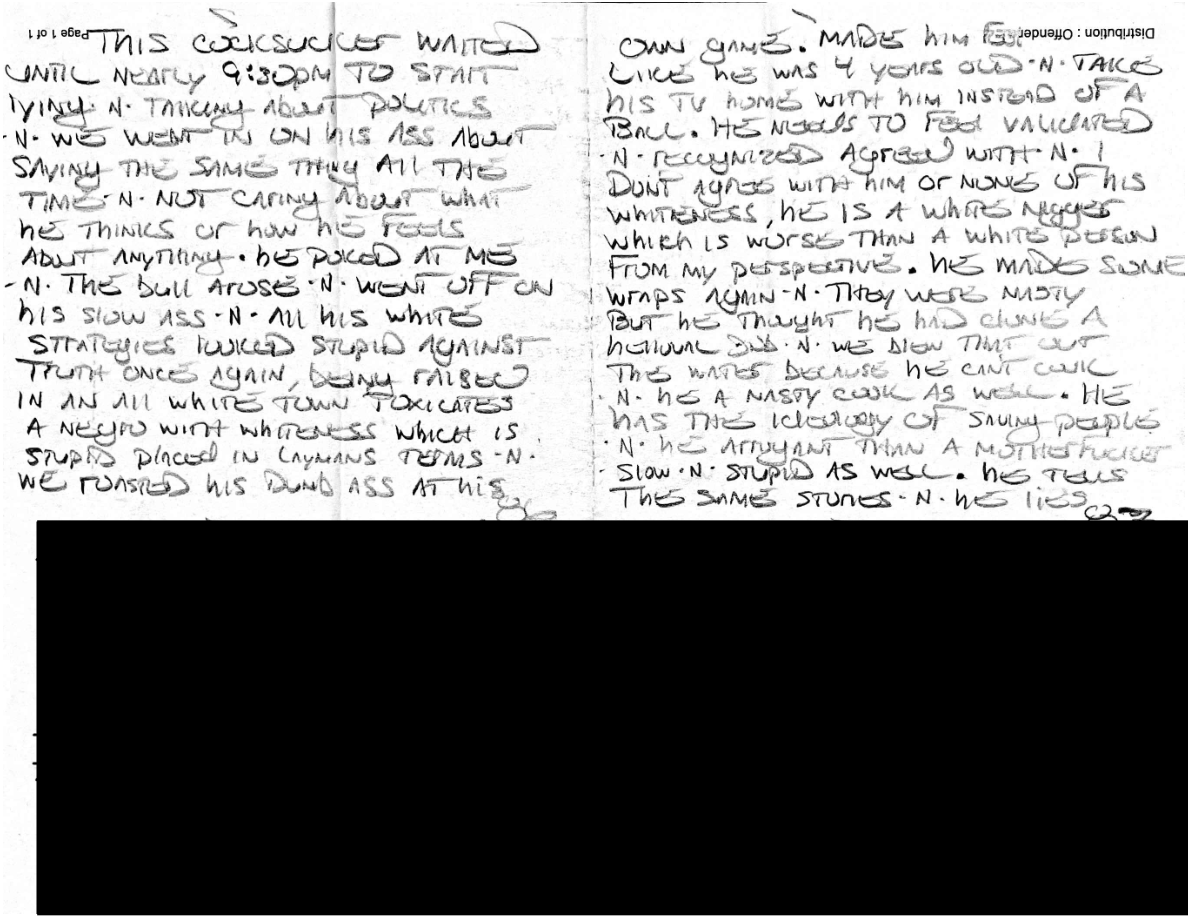 Page 1 of 1
THIS COCKSUCKER WAITED
UNTIL NEARLY 9:30PM TO START
lying ·N· TALKING ABOUT POLITICS
·N· WE WENT IN ON his ASS ABOUT
SAYING THE SAME THING ALL THE
TIME ·N· NOT CARING ABOUT WHAT
he THINKS OR how hE FEELS
ABOUT ANYTHING. hE POKED AT ME
·N· THE bull AROSE ·N· WENT OFF ON
his SLOW ASS ·N· All his WHITE
STRATEGIES LOOKED STUPID AGAINST
TRUTH ONCE AGAIN, bEING RAISED
IN AN All WHITE TOWN TOXICATES
A NEGRO WITH WHITENESS WHICH IS
STUPID placed IN LAYMANS TERMS ·N·
WE ROASTED his DUMB ASS AT his
Distribution : Offender
OWN gAME. MADE him FEEL
LIKE hE WAS 4 YEARS OLD ·N· TAKE
his TV HOME WITH him INSTEAD OF A
BALL. HE NEEDS TO FEEL VALIDATED
·N· RECOGNIZED AGREED WITH ·N· I
DONT AGREE WITH him OR NONE OF his
WHITENESS, hE IS A WHITE NIGGER
WHICH IS WORSE THAN A WHITE PERSON
FROM MY PERSPECTIVE. hE MADE SOME
WRAPS AGAIN ·N· THEY WERE NASTY
BUT hE THOUGHT hE HAD dONE A
WE BLEW THAT OUT
THE WATER BECAUSE hE CANT COOK
·N· hE A NASTY COOK AS WELL. HE
hAS THE IdEOLOGY OF SAVING PEOPLE
·N· hE ARROGANT THAN A MOTHERFUCKER
SLOW ·N· STUPID AS WELL. hE TELLS
THE SAME STORIES ·N· hE LIES